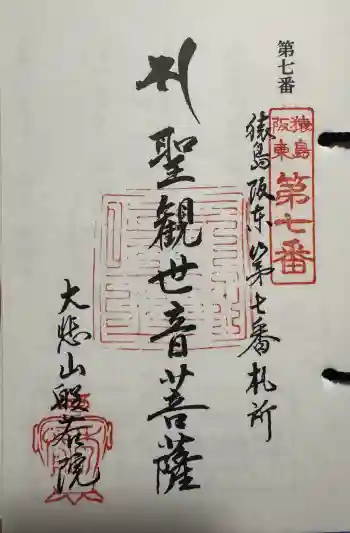 第七番
猿島阪東
第七番
猿島阪东第七番札所
聖觀世音菩薩
大悲山般若院